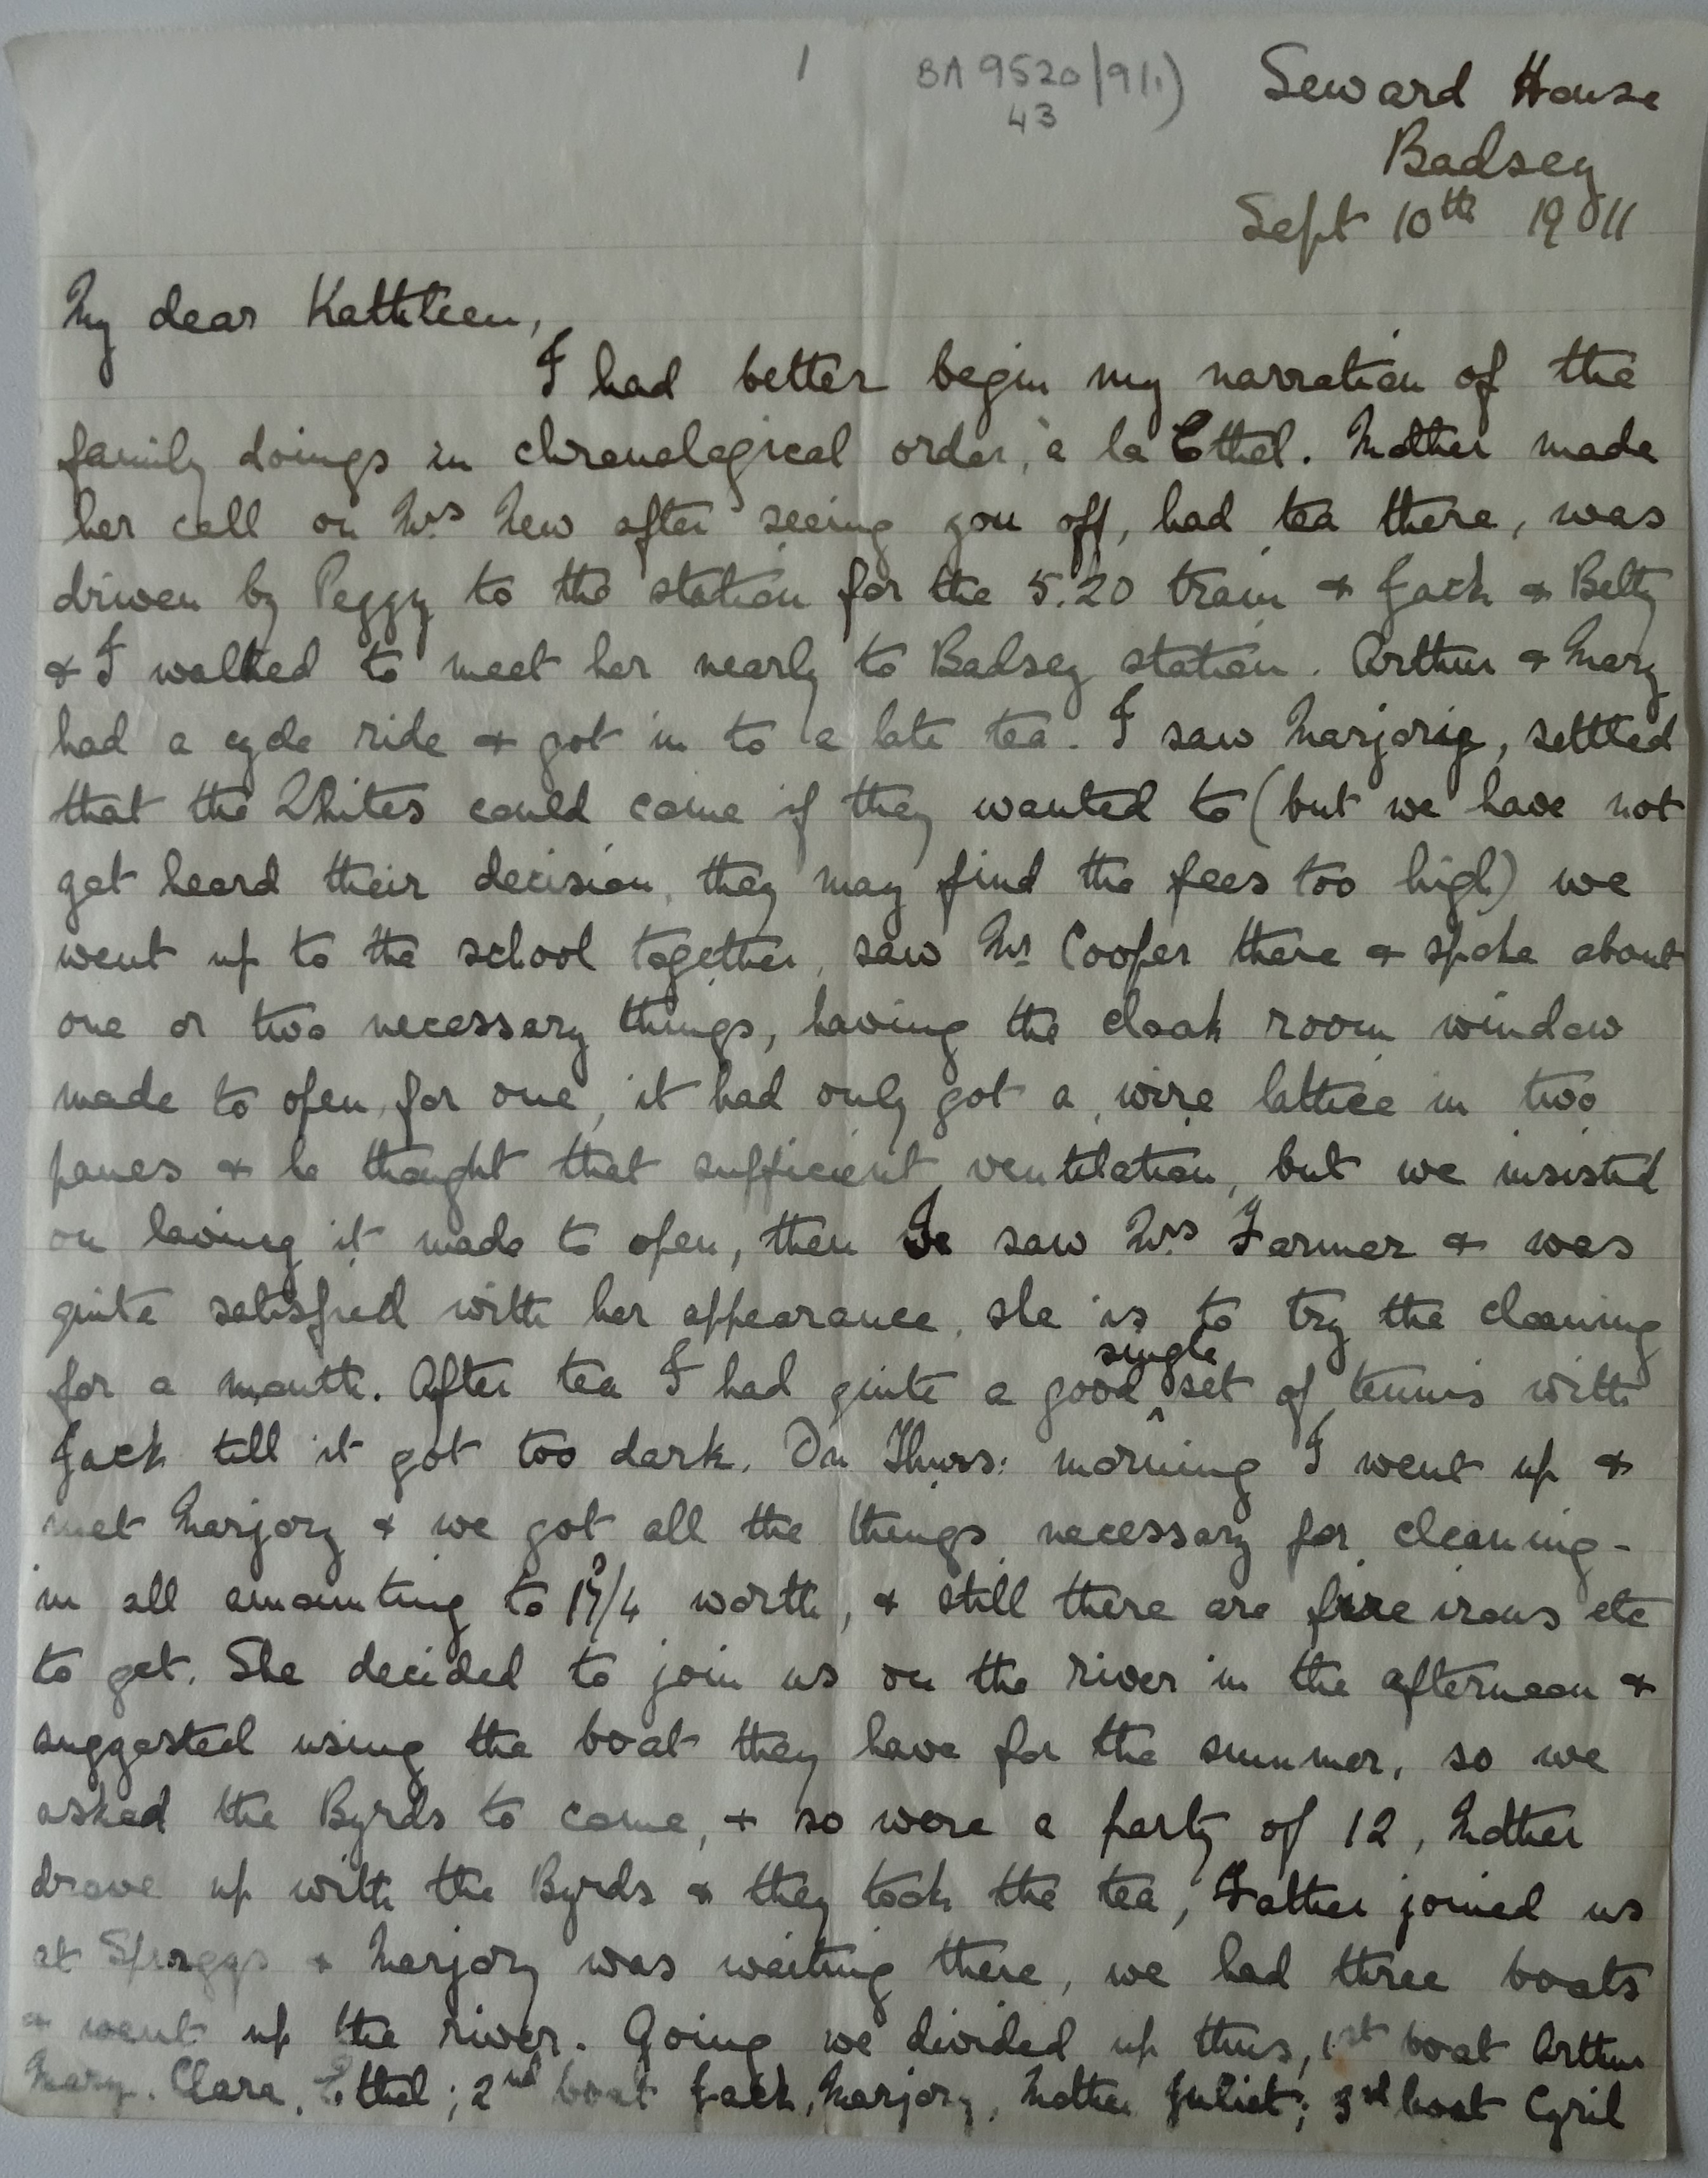 1 BA 9520/9(1) Seward House
43
Badsey
Sept 10th 1911
My dear Kathleen,
I had better begin my narration of the
family doings in chronological order, à la Ethel. Mother made
her call on Mrs New after seeing you off, had tea there, was
driven by Peggy to the station for the 5.20 train & Jack & Betty
& I walked to meet her nearly to Badsey station. Arthur & Mary
had a cycle ride & got in to a late tea. I saw Marjorie, settled
that the Whites could come if they wanted to (but we have not
yet heard their decision, they may find the fees too high) we
went up to the school together, saw Mr Cooper there & spoke about
one or two necessary things, having the cloak room window
made to open, for one, it had only got a wire lattice in two
panes & he thought that sufficient ventilation, but we insisted
on having it made to open, then I saw Mrs Farmer & was
quite satisfied with her appearance, she is to try the cleaning
for a month. After tea I had quite a good single set of tennis with
Jack till it got too dark. On Thurs: morning I went up &
met Marjory & we got all the things necessary for cleaning -
in all amounting to /4 worth, & still there are fire irons etc
to get. She decided to join us on the river in the afternoon &
suggested using the boat they have for the summer, so we
asked the Byrds to come, & so were a party of 12, Mother
drove up with the Byrds & they took the tea, Father joined us
at Spraggs & Marjory was waiting there, we had three boats
& went up the river. Going we divided up thus, 1st boat Arthur
Mary. Clara, Ethel; 2nd boat Jack, Marjory, Mother Juliet; 3rd boat Cyril